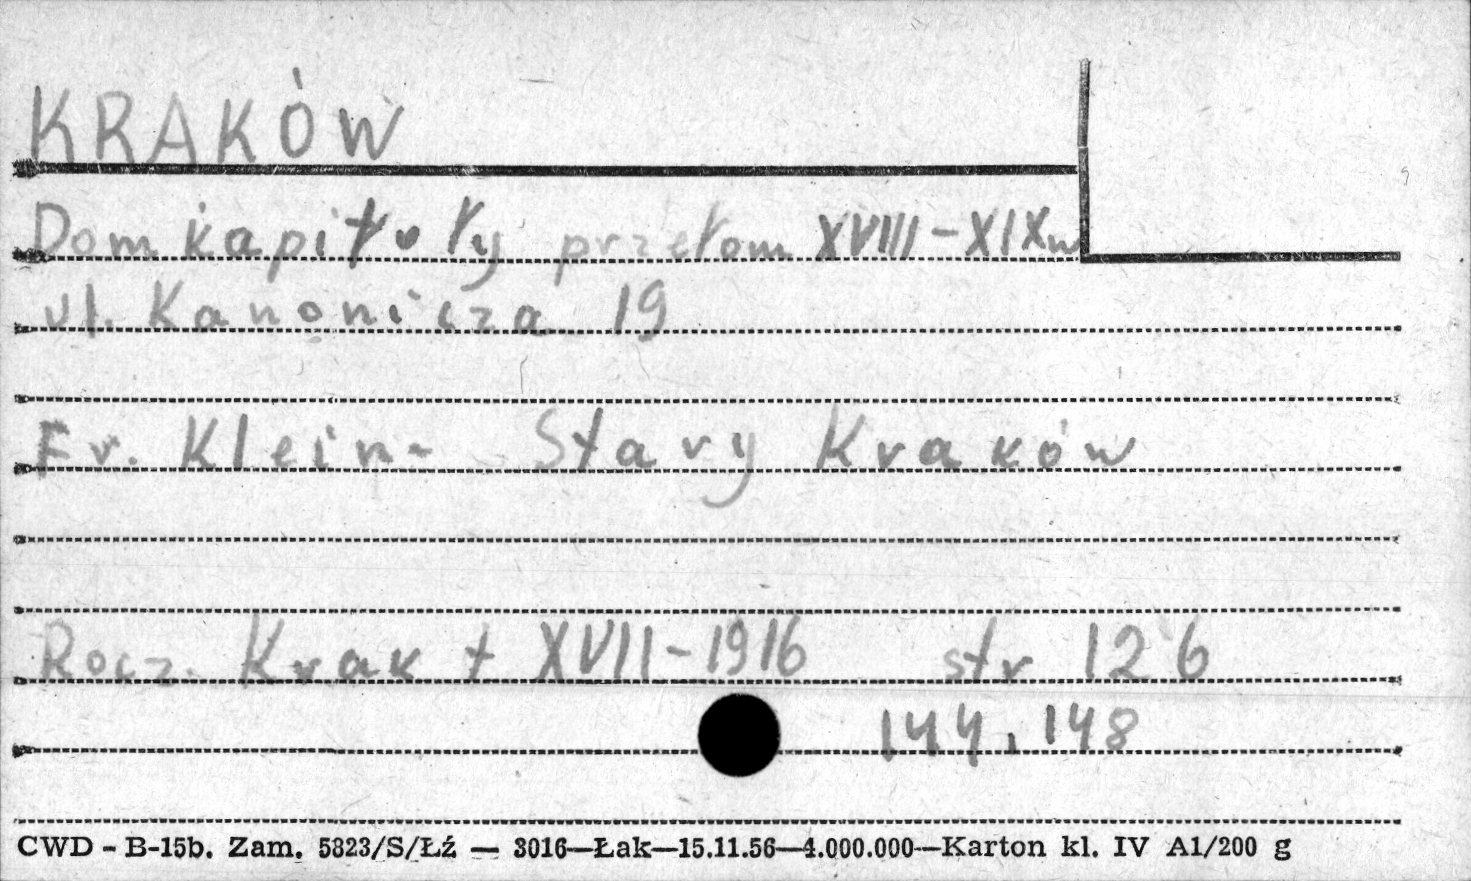 KRAKÓW
Dom kapituły przełom XVIII-XIXw
ul. Kanonicza 19
Fr. Klein- Stary Kraków
Rocz. Krak t XVII-1916 str 126
144, 148
CWD - B-15b. Zam. 5823/S/Łź — 3016—Łak—15.11.56—4.000.000—Karton kl. IV A1/200 g